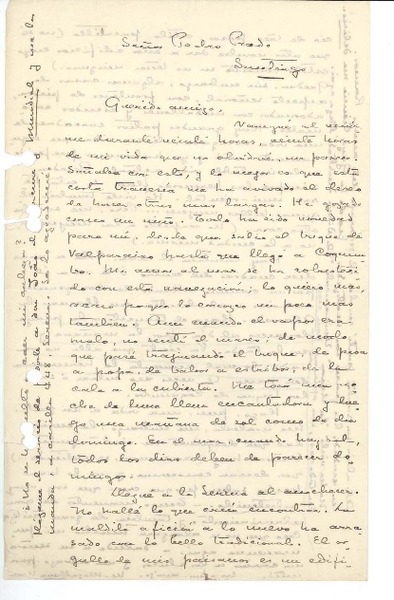 Señor Pedro Prado
Santiago
Querido amigo,
Navegué al venir
me durante veinte horas, veinte horas
de mi vida que no olvidaré, me parece.
Soñaba con esto, y lo mejor es que esta
corta travesía me ha avivado el deseo
de hacer otras mas largas. He gozado
como un niño. Todo ha sido novedad
para mí, desde que subí al buque de
Valparaíso hasta que llegó a Coquim
bo. Mi amor al mar se ha robusteci
do con esta navegación; lo quiero mas
ahora porque lo conozco un poco mas
tambien. Aun cuando el vapor era
malo, no sentí el mareo, de modo
que pasé trajinando el buque, de proa
a popa, de babor a estribor, de la
cala a la cubierta. Me tocó una no
che de luna llena encantadora y lue
go una mañana de sol como de día
domingo. En el mar, cuando hay sol,
todos los días deben de parecer do
mingos.
Llegué a la Serena al anochecer.
No hallé lo que creía encontrar. La
maldita afición a lo nuevo ha arra
sado con lo bello tradicional. El or
gullo de mis paisanos es un edifi